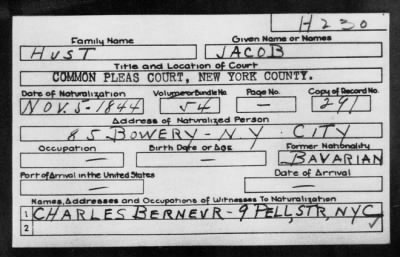 H230
Family Name Given Name or Names
HUST JACOB
Title and Location of Court
COMMON PLEAS COURT, NEW YORK COUNTY.
Date of Naturalization Volume or Bundle No. Page No. Copy of Record No.
NOV. 5-1844 54 — 291
Address of Naturalized Person
85 BOWERY - N.Y. CITY
Occupation Birth Date or Age Former Nationality
— — BAVARIAN
Port of Arrival in the United States Date of Arrival
— —
Names, Addresses and Occupations of Witnesses To Naturalization
1 CHARLES BERNEUR - 9 PELL, STR, NYC
2